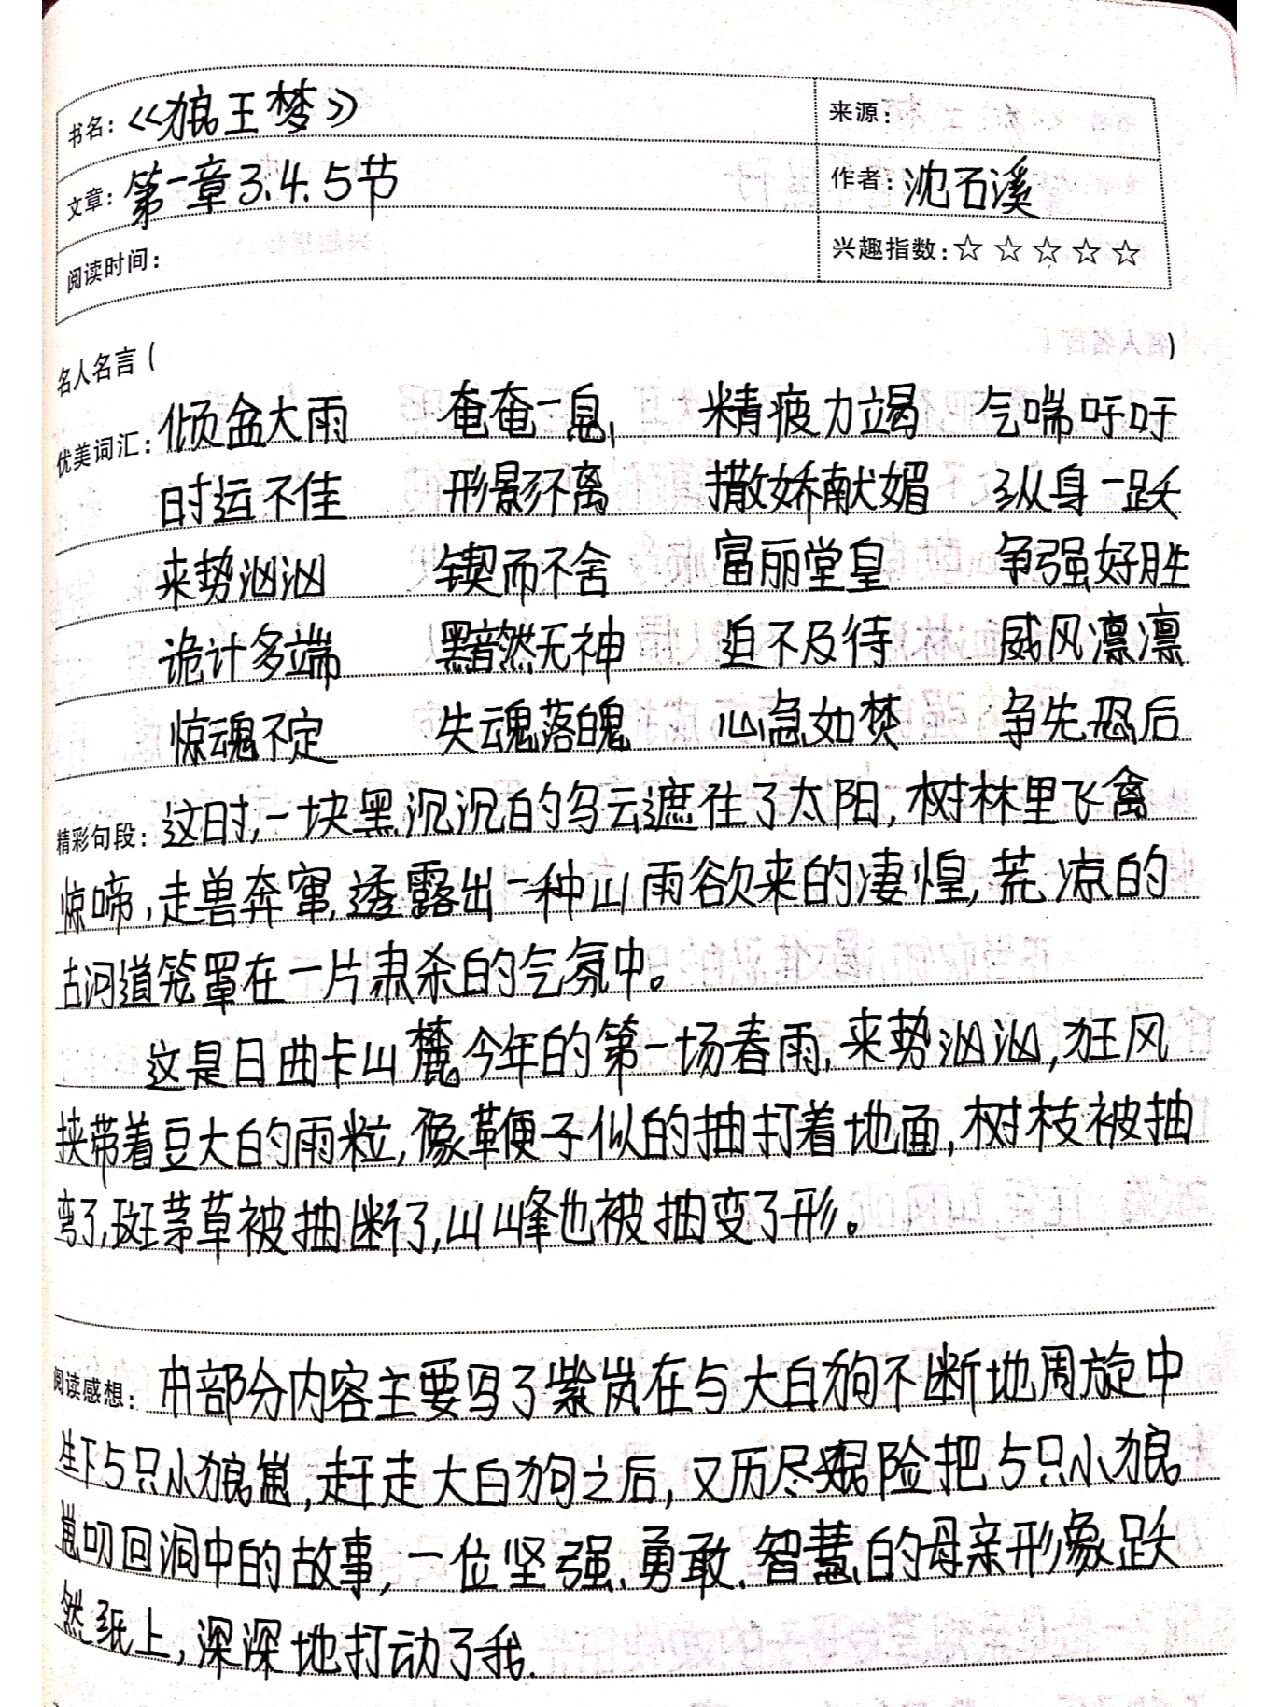 书名：《狼王梦》
来源：
文章：第一章3.4.5节
作者：沈石溪
阅读时间：
兴趣指数：☆☆☆☆☆
名人名言（ ）
优美词汇：倾盆大雨 奄奄一息 精疲力竭 气喘吁吁
时运不佳 形影不离 撒娇献媚 纵身一跃
来势汹汹 锲而不舍 富丽堂皇 争强好胜
诡计多端 黯然无神 迫不及待 威风凛凛
惊魂不定 失魂落魄 心急如焚 争先恐后
精彩句段：这时，一块黑沉沉的乌云遮住了太阳，树林里飞禽
惊啼，走兽奔窜，透露出一种山雨欲来的凄惶，荒凉的
古河道笼罩在一片肃杀的气氛中。
这是日曲卡山麓今年的第一场春雨，来势汹汹，狂风
挟带着豆大的雨粒，像鞭子似的抽打着地面，树枝被抽
弯了，斑茅草被抽断了，山峰也被抽变了形。
阅读感想：本部分内容主要写了紫岚在与大白狗不断地周旋中
生下5只小狼崽，赶走大白狗之后，又历尽艰险把5只小狼
崽叼回洞中的故事，一位坚强、勇敢、智慧的母亲形象跃
然纸上，深深地打动了我.